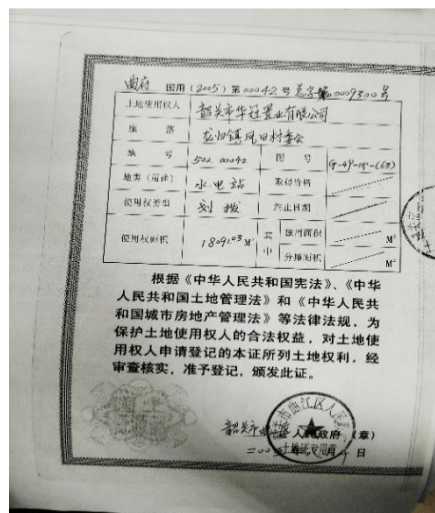 曲府 国用(2005)第00042号 总字第0009300号
土地使用权人 韶关市华冠置业有限公司
座落 龙归镇凤田村委会
地号 502 00042 图号
地类(用途) 水电站 取得价格
使用权类型 划拨 终止日期
使用权面积 M² 其中 独用面积 M²
分摊面积 M²
根据《中华人民共和国宪法》、《中华
人民共和国土地管理法》和《中华人民共
和国城市房地产管理法》等法律法规,为
保护土地使用权人的合法权益,对土地使
用权人申请登记的本证所列土地权利,经
审查核实,准予登记,颁发此证。
韶关市曲江区人民政府(章)
日